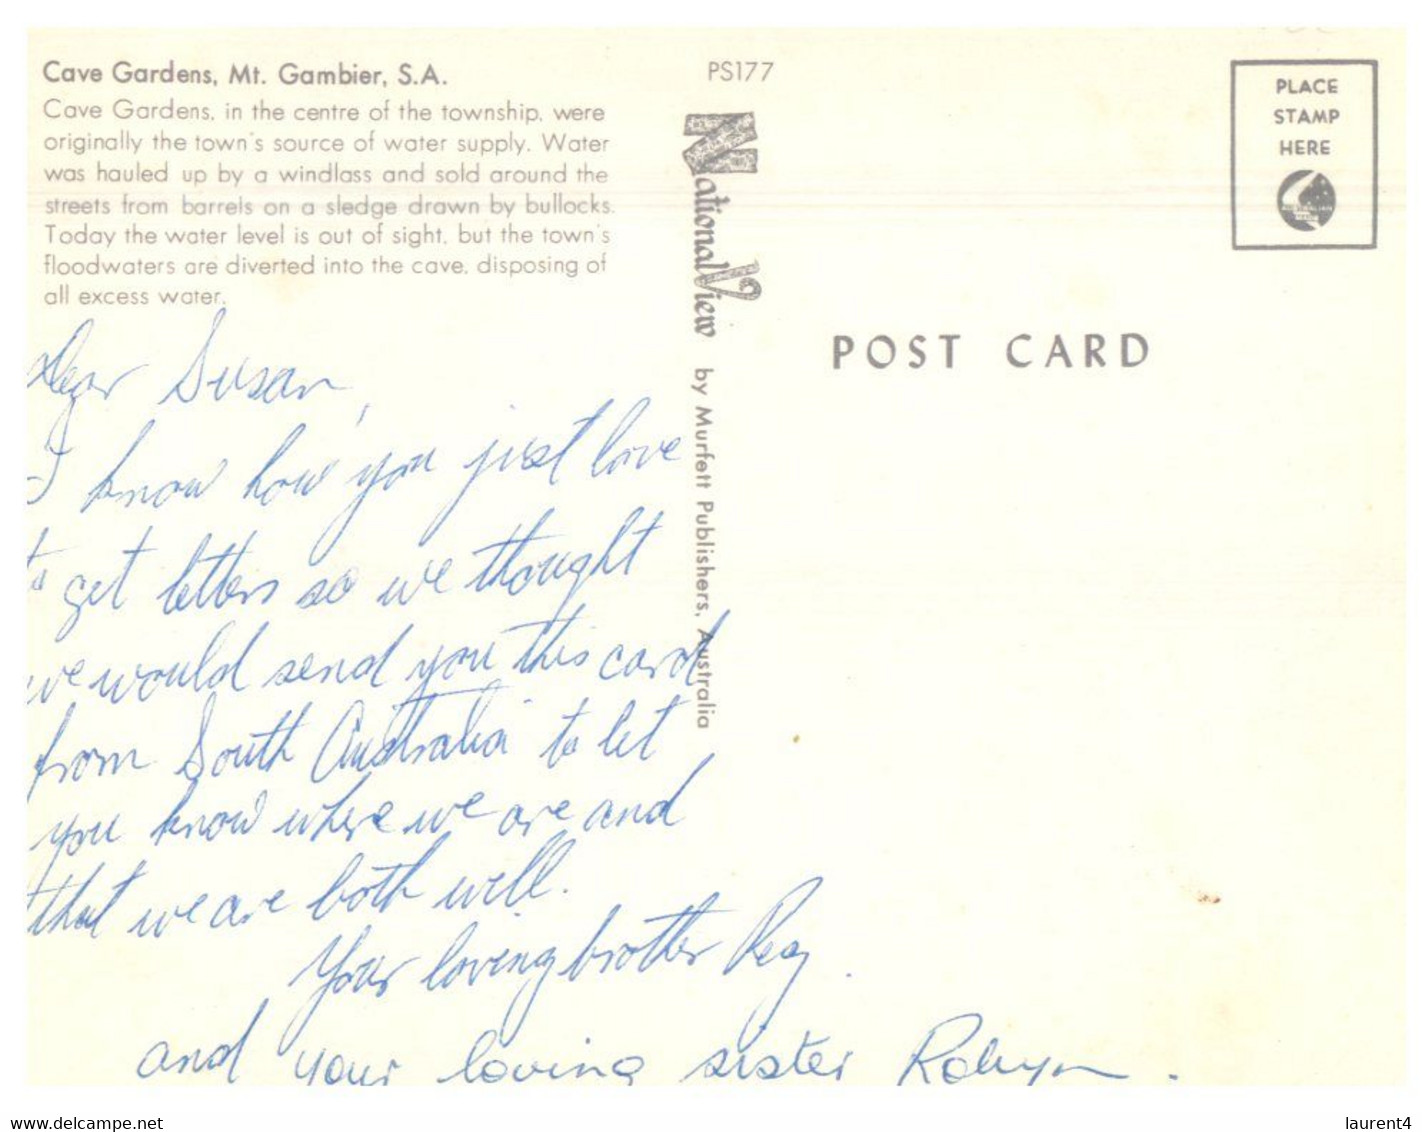 Cave Gardens, Mt. Gambier, S.A.
Cave Gardens, in the centre of the township, were
originally the town's source of water supply. Water
was hauled up by a windlass and sold around the
streets from barrels on a sledge drawn by bullocks.
Today the water level is out of sight, but the town's
floodwaters are diverted into the cave, disposing of
all excess water.
Dear Susan,
I know how you just love
to get letters so we thought
we would send you this card
from South Australia to let
you know where we are and
that we are both well.
Your loving brother Reg.
and your loving sister Robyn.
PS177
National View by Murfett Publishers, Australia
PLACE
STAMP
HERE
POST CARD
www.delcampe.net
laurent4